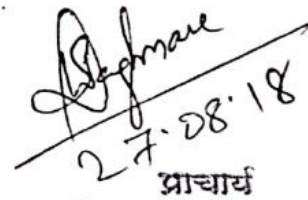 27.08.18
प्राचार्य